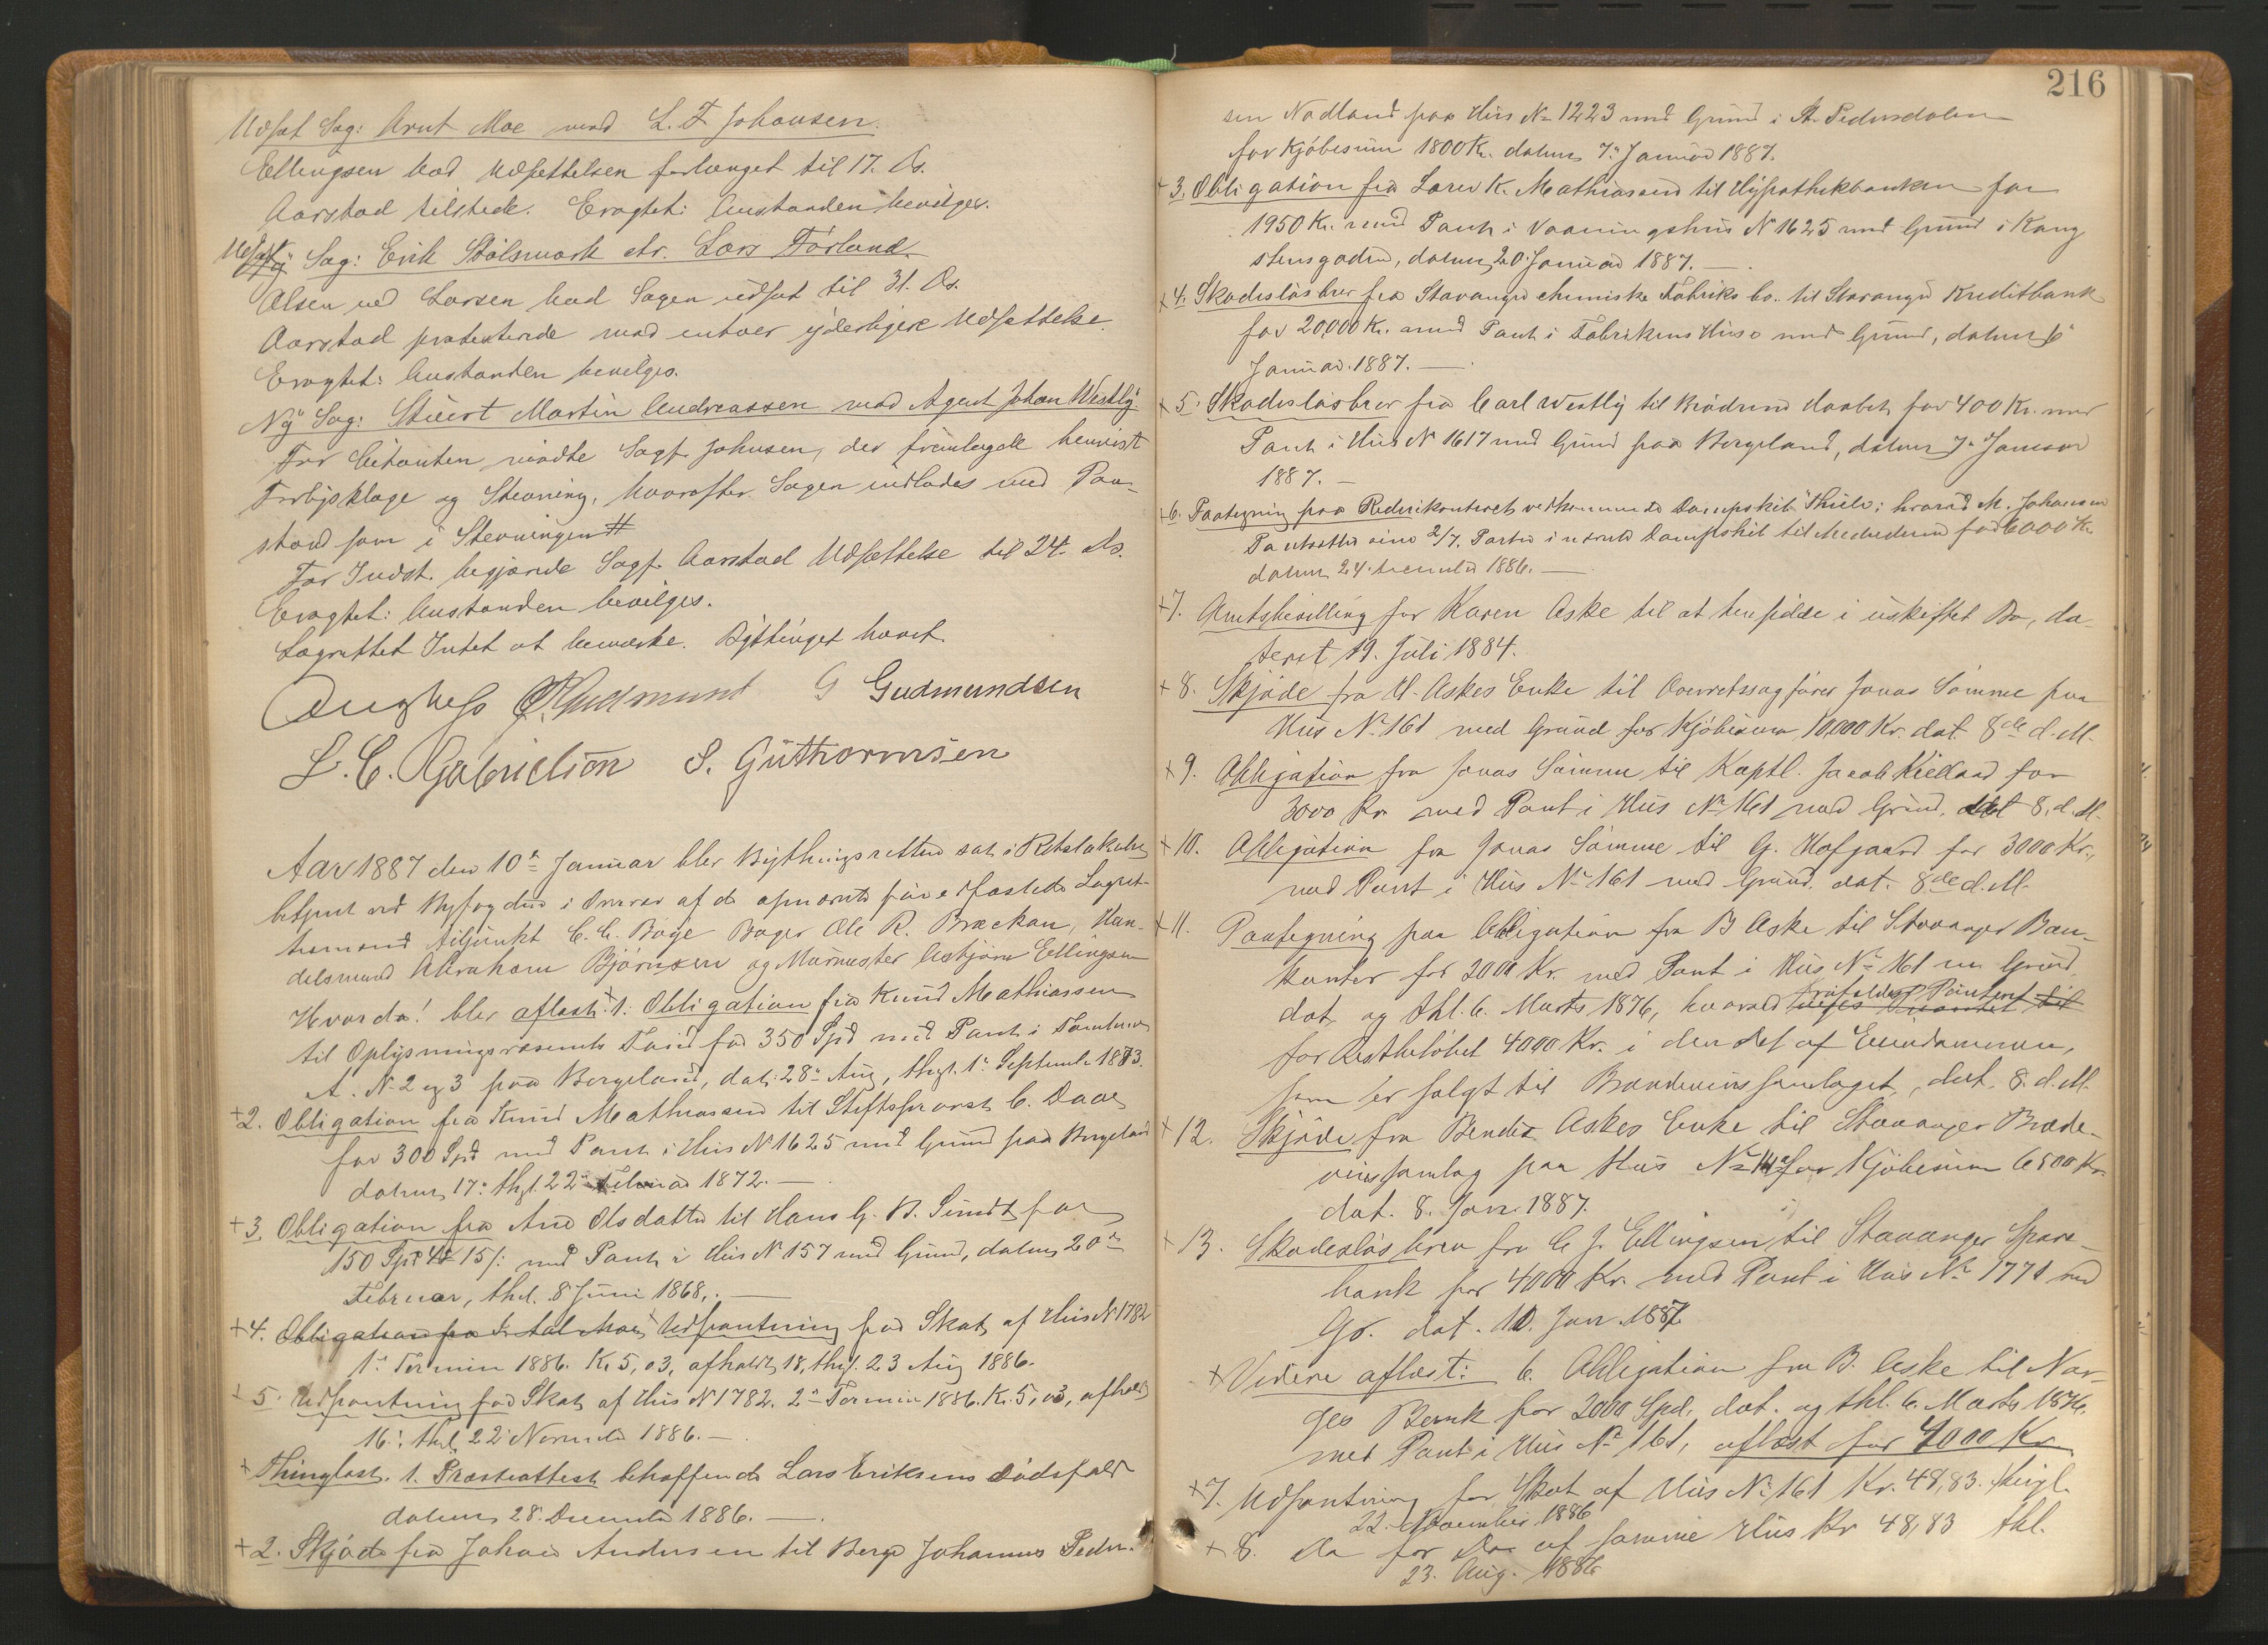 Udsat Sag: Arnt Moe mod L. T. Johansen.
Ellingsen bad Udsettelsen forlænget til 17. Ds.
Aarstad tilstede. Eragtet: Anstanden bevilges.
Udsat Sag: Erik Stølsmark ctr. Lars Førland.
Olsen ved Larsen bad Sagen udsat til 31. Ds.
Aarstad protesterede mod enhver yderligere Udsettelse.
Eragtet: Anstanden bevilges.
Ny Sag: Stuert Martin Andreassen mod Agent Johan Westly
For Citanten mødte Sagf. Johnsen, der fremlagde henvist
Forligsklage og Stevning, hvorefter Sagen indlodes med Paa-
stand som i Stevningen #
For Indst. begjærede Sagf. Aarstad Udsettelse til 24. Ds.
Eragtet: Anstanden bevilges.
Lagrettet Intet at bemærke. Bythinget hævet.
G Gudmundsen
L. C. Gabrielsen S. Guthormsen
Aar 1887 den 10de Januar blev Bythingsretten sat i Retslokalet
betjent ved Byfogden i Overvær af de opnævnte edfæstede Lagret-
temænd Adjunkt C. C. Bøye Bager Ole R. Brækan, Han-
delsmand Abraham Bjørnsen og Murmester Asbjørn Ellingsen
Hvorda! blev aflæst: 1. Obligation fra Knud Mathiassen
til Oplysningsvæsenets Fond for 350 Spd med Pant i Tomterne
A. N. 2 og 3 paa Bergeland, dat. 28. Aug, thgl. 1. September 1873.
+2. Obligation fra Knud Mathiassen til Stiftsprovst C. Daae
for 300 Spd med Pant i Hus N 1625 med Grund paa Bergeland
datum 17. thgl. 22. Februar 1872.—
+3. Obligation fra Ane Olsdatter til Hans G. B. Sundt for
150 Spd 4 15/: med Pant i Hus N 157 med Grund, datum 20de
Februar, thgl. 8 Juni 1868.—
+4. Obligation fra Udpantning for Skat af Hus N 1782
1. Termin 1886. K. 5,03, afholdt 18, thgl. 23 Aug 1886.
+5. Udpantning for Skat af Hus N 1782. 2. Termin 1886. K. 5,03, afholdt
16. thgl. 22 November 1886.—
+Thinglæst. 1. Præsteattest betræffende Lars Eriksens Dødsfald
datum 28. December 1886.—
+2. Skjøde fra Johan Andersen til Berge Johannes Peder-
216
sen Nødland paa Hus No 1223 med Grund i St. Pedersdalen
for Kjøbesum 1800 Kr. datum 7. Januar 1887.
+3. Obligation fra Lars K. Mathiassen til Hypothekbanken for
1950 Kr. med Pant i Vaaningshus N 1625 med Grund i Kong
stensgaden, datum 20 Januar 1887.—
+4. Skadesløsbrev fra Stavanger chemiske Fabriks Co. til Stavanger Kreditbank
for 20,000 Kr. med Pant i Fabrikens Huse med Grund, datum 6
Januar 1887.—
+5. Skadesløsbrev fra Carl Westly til Brødrene Daabet for 400 Kr. med
Pant i Hus N 1617 med Grund paa Bergeland, datum 7. Januar
1887.—
+6. Paategning paa Rederikontrakt vedkommende Dampskib "Thule": hvorved M. Johansen
Pantsætter sine 2/7. Parter i nævnte Dampskib til Medrederne for 6000 Kr.
datum 24. December 1886.—
+7. Amtsbevilling for Karen Aske til at hensidde i uskiftet Bo, da-
teret 19. Juli 1884.
+8. Skjøde fra H. Askes Enke til Overretssagfører Jonas Sømme paa
Hus No 161 med Grund for Kjøbesum 10,000 Kr. dat. 8de d. M.
+9. Obligation fra Jonas Sømme til Kaptl. Jacob Kielland for
3000 Kr. med Pant i Hus No 161 med Grund, dat 8. d. M.
+10. Obligation fra Jonas Sømme til G. Hofgaard for 3000 Kr.,
med Pant i Hus No 161 med Grund. dat. 8de d. M.
+11. Paategning paa Obligation fra B Aske til Stavanger Ban-
kontor for 2000 Kr. med Pant i Hus No 161 m Grund
dat. og thl. 6. Marts 1876, hvorved frafaldes Panteret til
for Restbeløbet 4000 Kr. i den Del af Eiendommen,
som er solgt til Brændevinssamlaget, dat. 8. d. M.
+12. Skjøde fra Bendix Askes Enke til Stavanger Brænde-
vinssamlag paa Hus No for Kjøbesum 6500 Kr.
dat. 8. Jan. 1887.
+13. Skadesløsbrev fra C J. Ellingsen til Stavanger Spare-
bank for 4000 Kr. med Pant i Hus No 1771 med
Gr. dat. 10. Jan. 1887
+Videre aflæst: 6. Obligation fra B. Aske til Nor-
ges Bank for 2000 Spd. dat. og thl. 6. Marts 1876.
med Pant i Hus No 161, aflæst for 4000 Kr
+7. Udpantning for Skat af Hus No 161 Kr. 48,83. thgl.
22. November 1886
+8. Do for Do af samme Hus Kr 48,83 thl.
23. Aug. 1886